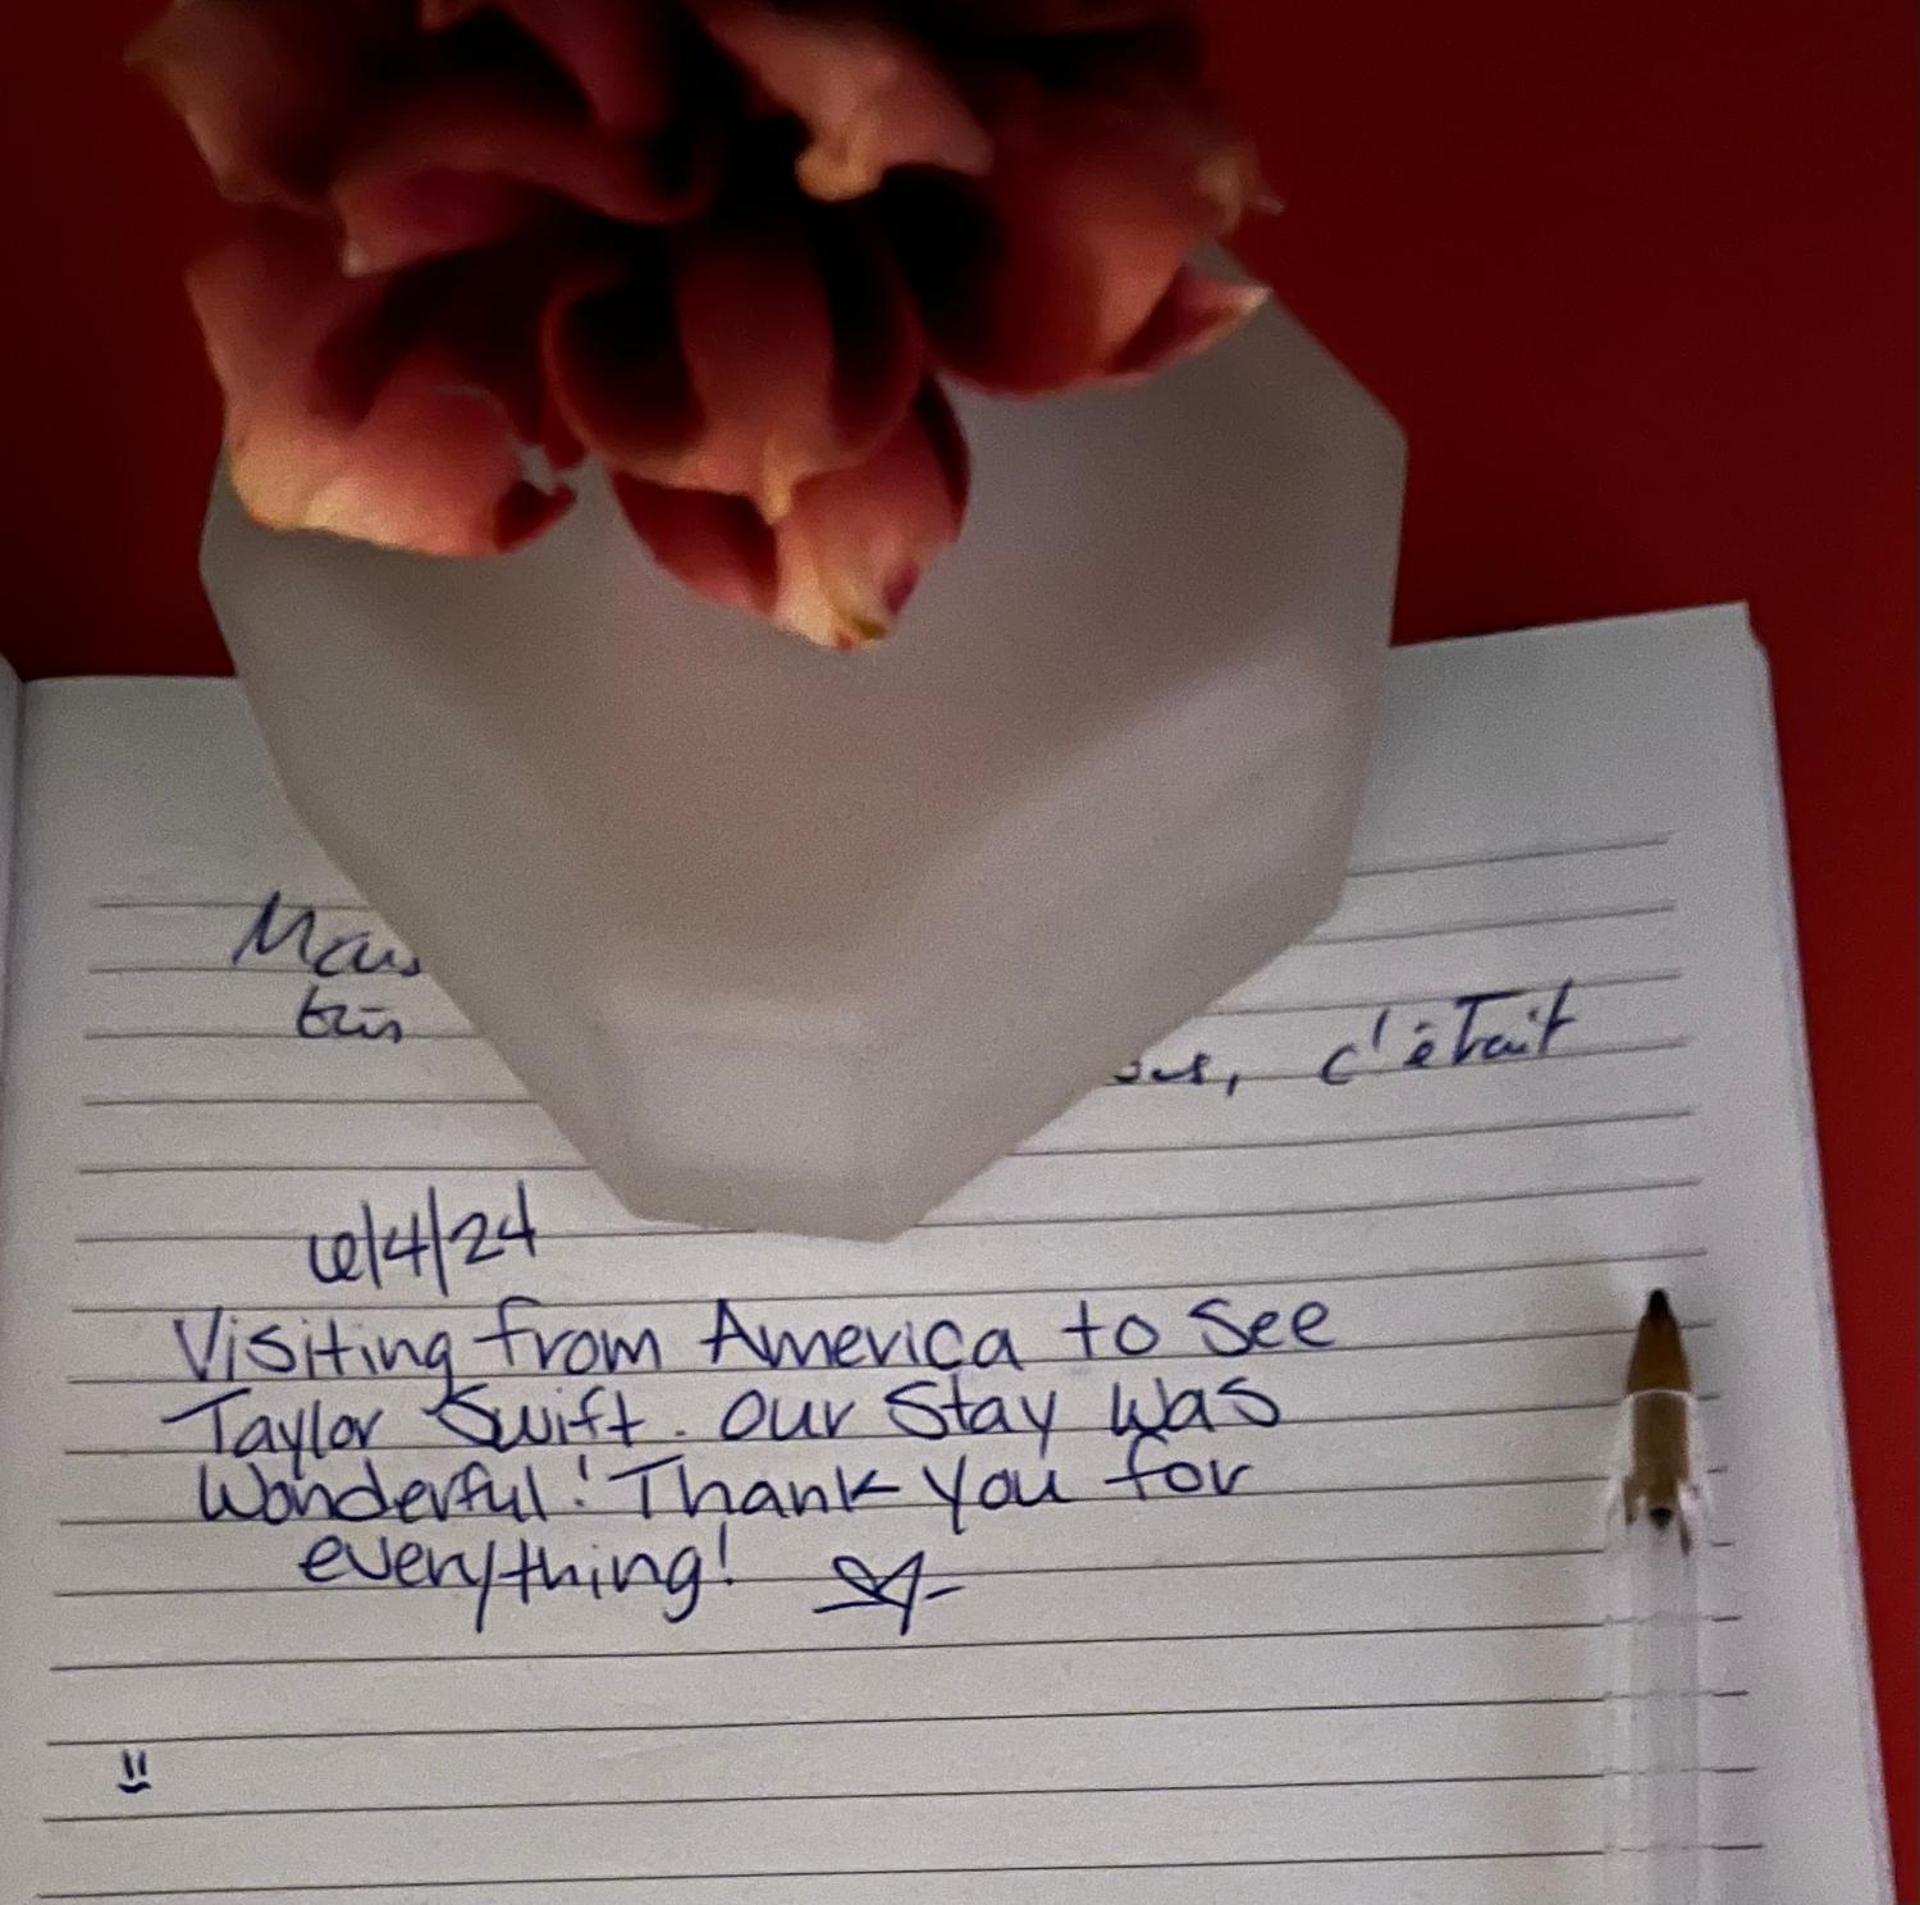 c'était
6/4/24
Visiting from America to See
Taylor Swift. Our Stay was
Wonderful! Thank you for
everything!